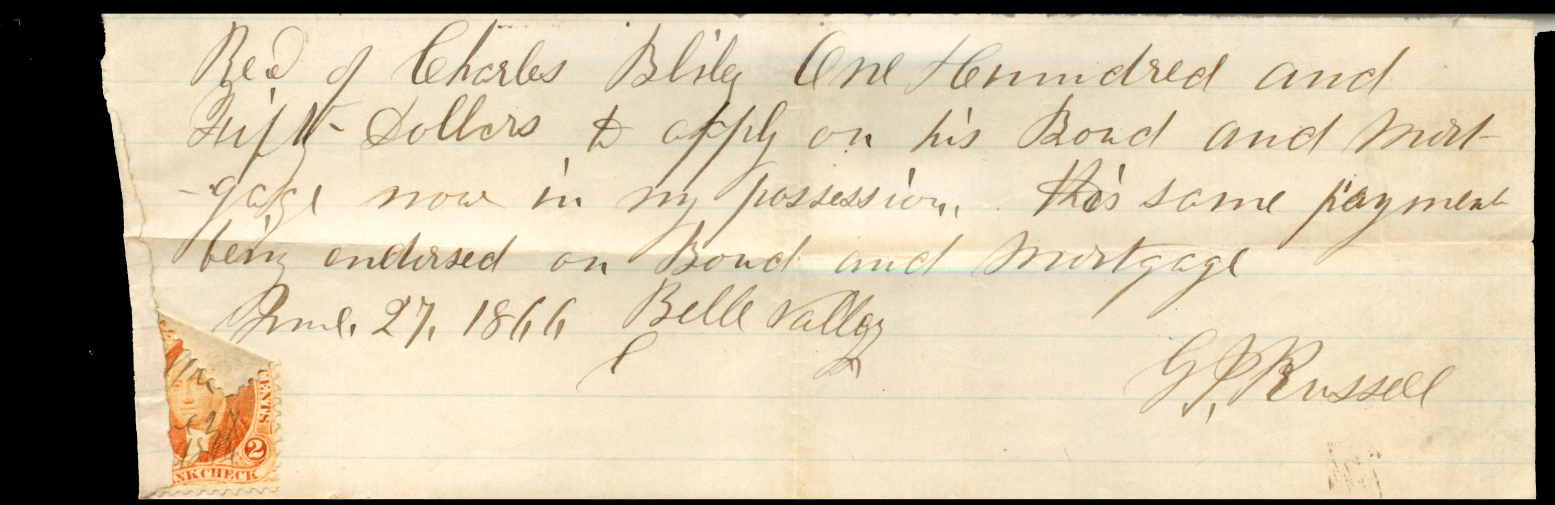 Recd of Charles Blily One Hunndred and
Fifty Dollers to apply on his Bond and Mort-
-gage now in my possession. this same payment
being endorsed on Bond and Mortgage
June, 27, 1866 Belle Valley
G. J. Russell
CENTS
2
NK CHECK